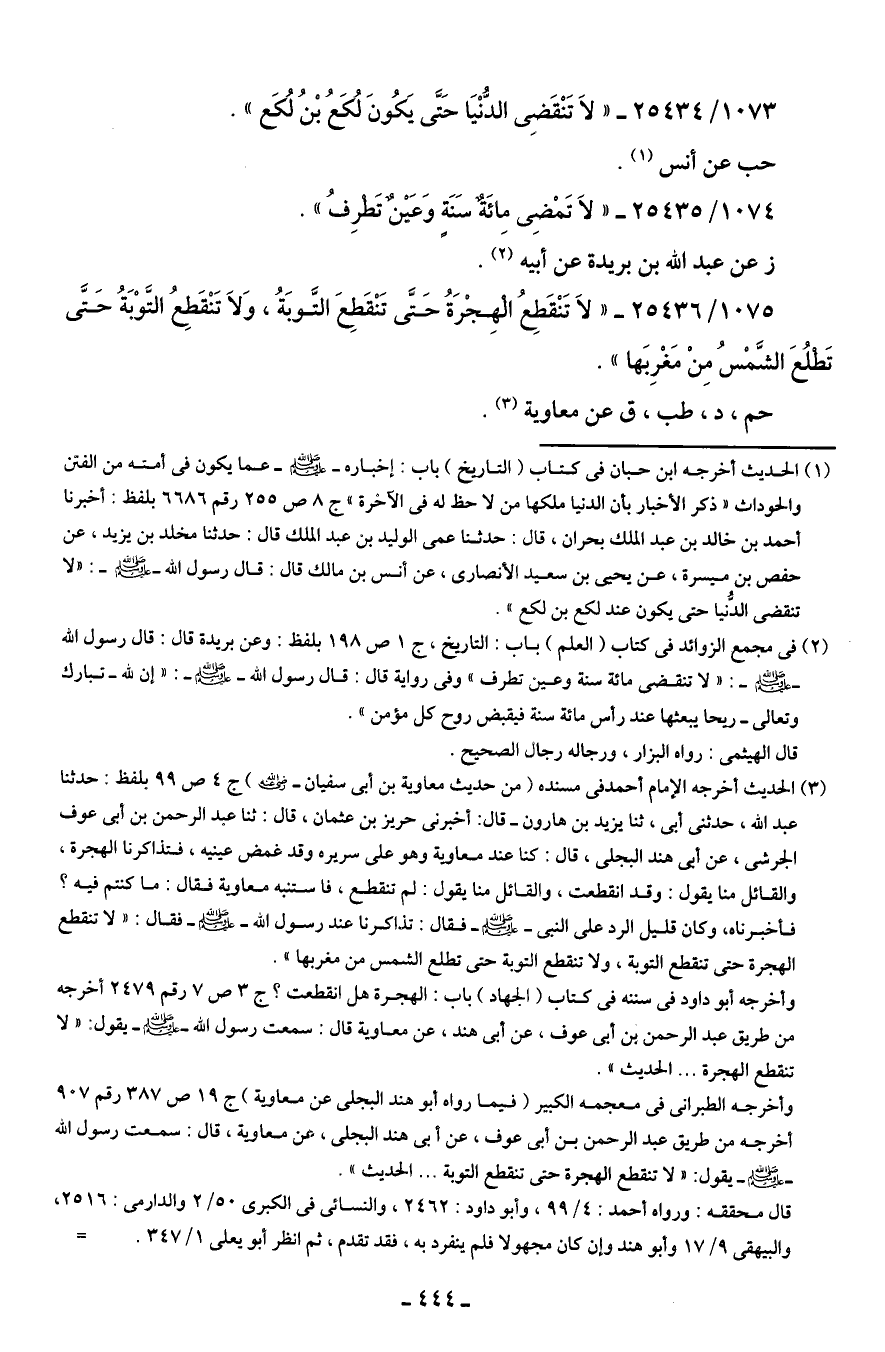 ١٠٧٣/ ٢٥٤٣٤ ـ « لاَ تَنْقَضِى الدُّنْيَا حَتَّى يَكُونَ لُكَعُ بْنُ لُكَعٍ » .
حب عن أنس (١) .
١٠٧٤/ ٢٥٤٣٥ ـ « لاَ تَمْضِى مِائَةُ سَنَةٍ وَعَيْنٌ تَطْرِفُ » .
ز عن عبد الله بن بريدة عن أبيه (٢) .
١٠٧٥/ ٢٥٤٣٦ ـ « لاَ تَنْقَطِعُ الْهِجْرَةُ حَتَّى تَنْقَطِعَ التَّوبَةُ ، وَلاَ تَنْقَطِعُ التَّوْبَةُ حَتَّى
تَطْلُعَ الشَّمْسُ مِنْ مَغْرِبَها » .
حم ، د ، طب ، ق عن معاوية (٣) .
(١) الحديث أخرجه ابن حبان فى كتاب ( التاريخ ) باب : إخباره ـ ﷺ ـ عما يكون فى أمته من الفتن
والحوداث « ذكر الأخبار بأن الدنيا ملكها من لا حظ له فى الآخرة » ج ٨ ص ٢٥٥ رقم ٦٦٨٦ بلفظ : أخبرنا
أحمد بن خالد بن عبد الملك بحران ، قال : حدثنا عمى الوليد بن عبد الملك قال : حدثنا مخلد بن يزيد ، عن
حفص بن ميسرة ، عن يحيى بن سعيد الأنصارى ، عن أنس بن مالك قال : قال رسول الله ـ ﷺ ـ : «لا
تنقضى الدُّنيا حتى يكون عند لكع بن لكع » .
(٢) فى مجمع الزوائد فى كتاب ( العلم ) باب : التاريخ ، ج ١ ص ١٩٨ بلفظ : وعن بريدة قال : قال رسول الله
ـ ﷺ ـ : « لا تنقضى مائة سنة وعين تطرف » وفى رواية قال : قال رسول الله ـ ﷺ ـ : « إن لله ـ تبارك
وتعالى ـ ريحا يبعثها عند رأس مائة سنة فيقبض روح كل مؤمن » .
قال الهيثمى : رواه البزار ، ورجاله رجال الصحيح .
(٣) الحديث أخرجه الإمام أحمدفى مسنده ( من حديث معاوية بن أبى سفيان ـ رضي الله عنه ) ج ٤ ص ٩٩ بلفظ : حدثنا
عبد الله ، حدثنى أبى ، ثنا يزيد بن هارون ـ قال: أخبرنى حريز بن عثمان ، قال : ثنا عبد الرحمن بن أبى عوف
الجرشى ، عن أبى هند البجلى ، قال : كنا عند معاوية وهو على سريره وقد غمض عينيه ، فتذاكرنا الهجرة ،
والقائل منا يقول : وقد انقطعت ، والقائل منا يقول : لم تنقطع ، فا ستنبه معاوية فقال : ما كنتم فيه ؟
فأخبرناه، وكان قليل الرد على النبى ـ ﷺ ـ فقال : تذاكرنا عند رسول الله ـ ﷺ ـ فقال : « لا تنقطع
الهجرة حتى تنقطع التوبة ، ولا تنقطع التوبة حتى تطلع الشمس من مغربها » .
وأخرجه أبو داود فى سننه فى كتاب ( الجهاد ) باب : الهجرة هل انقطعت ؟ ج ٣ ص ٧ رقم ٢٤٧٩ أخرجه
من طريق عبد الرحمن بن أبى عوف ، عن أبى هند ، عن معاوية قال : سمعت رسول الله ـ ﷺ ـ يقول: « لا
تنقطع الهجرة ... الحديث » .
وأخرجه الطبرانى فى معجمه الكبير ( فيما رواه أبو هند البجلى عن معاوية ) ج ١٩ ص ٣٨٧ رقم ٩٠٧
أخرجه من طريق عبد الرحمن بن أبى عوف ، عن أ بى هند البجلى ، عن معاوية ، قال : سمعت رسول الله
ـ ﷺ ـ يقول: « لا تنقطع الهجرة حتى تنقطع التوبة ... الحديث » .
قال محققه : ورواه أحمد : ٤/ ٩٩ ، وأبو داود : ٢٤٦٢ ، والنسائى فى الكبرى ٥٠/ ٢ والدارمى : ٢٥١٦،
والبيهقى ٩/ ١٧ وأبو هند وإن كان مجهولا فلم ينفرد به ، فقد تقدم ، ثم انظر أبو يعلى ١/ ٣٤٧ . =
ـ ٤٤٤ ـ